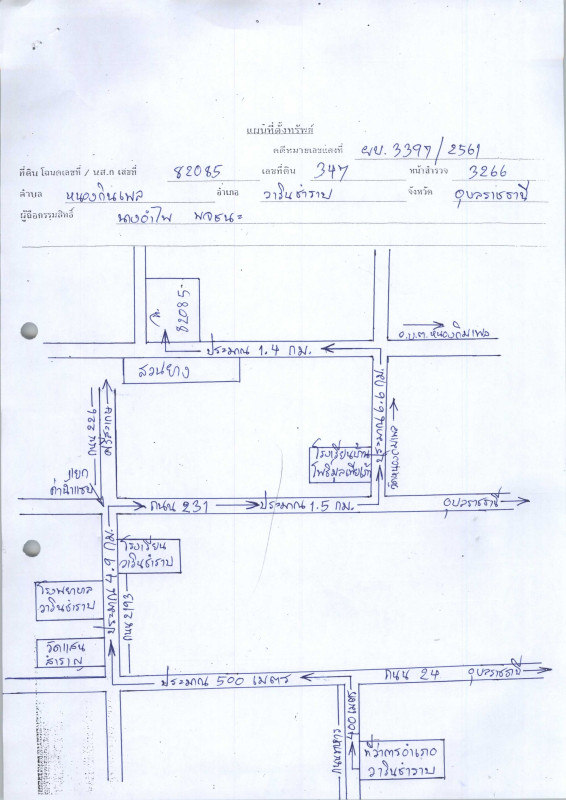 แผนที่ตั้งทรัพย์
คดีหมายเลขแดงที่ ผบ. 3397/2561
ที่ดิน โฉนดเลขที่ / นส.ก เลขที่ 82085 เลขที่ดิน 347 หน้าสำรวจ 3266
ตำบล หนองกินเพล อำเภอ วารินชำราบ จังหวัด อุบลราชธานี
ผู้ถือกรรมสิทธิ์ นางอำไพ
82085-
อ.บ.ต.หนองกินเพล
ประมาณ 1.4 กม.
สวนยาง
ถนน 226
ศรีสะเกษ
ประมาณ 6.6 กม.
โรงเรียนบ้าน
แยก
ถนน 231
ประมาณ 1.5 กม.
อุบลราชธานี
ประมาณ 4.9 กม.
โรงเรียน
วารินชำราบ
โรงพยาบาล
วารินชำราบ
ถนน 2193
วัดแสน
สำราญ
ประมาณ 500 เมตร
ถนน 24
อุบลราชธานี
400 เมตร
ที่ว่าการอำเภอ
วารินชำราบ